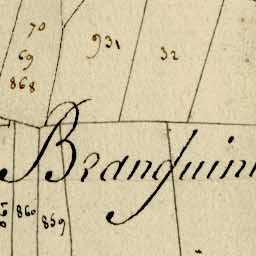 70
69
868
931
32
Branguini
860
859